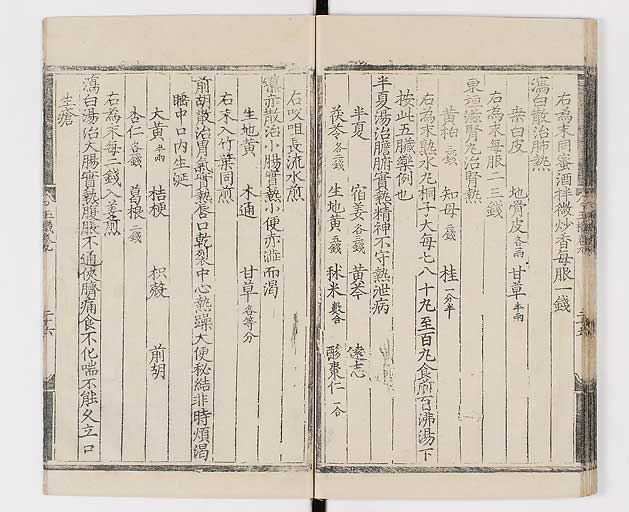 右為末同蜜酒拌微炒香每服一錢
瀉白散治肺熱
桑白皮 地骨皮各一兩 甘草半兩
右為末每服二三錢
東垣滋腎丸治腎熱
黃栢二錢 知母二錢 桂一分半
右為末熟水丸桐子大每七八十丸至百丸食前百沸湯下
按此五臟藥例也
半夏湯治膽腑實熱精神不守熱泄病
半夏 宿姜各三錢 黃芩 遠志
茯苓各二錢 生地黃五錢 秫米數合 酸棗仁一合
右㕮咀長流水煎
導赤散治小腸實熱小便赤澁而渴
生地黃 木通 甘草各等分
右末入竹葉同煎
前胡散治胃氣實熱唇口乾裂中心熱躁大便秘結非時煩渴
睡中口內生涎
大黃半兩 桔梗 枳殼 前胡
杏仁各錢 葛根二錢
右為末每二錢入姜煎
瀉白湯治大腸實熱腹脹不通俠臍痛食不化喘不能久立口
生瘡